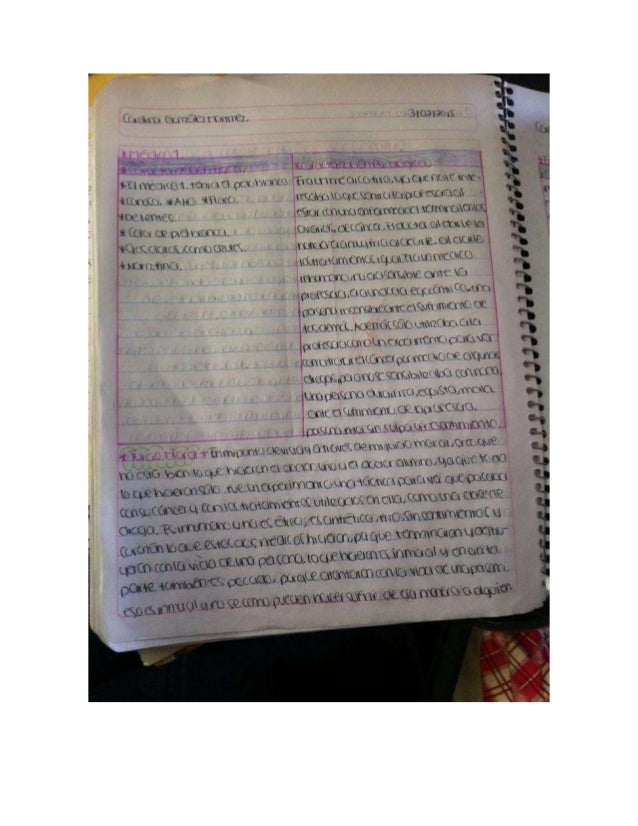 Carolina González Martínez. 3/02/2015
*Médico 1
*Característica física
*El médico 1. tenía el pelo blanco
*canoso. *Alto *Flaco.
*De lentes.
*Color de piel blanca.
*Ojos claros, como azules.
*Nariz fina.
*Caracterización Psicológica
Era un médico frío, ya que no le inte-
resaba lo que sentía la profesora al
estar con una enfermedad terminal en los
ovarios, de cáncer. El doctor al darle la
noticia era muy fría al decirle, el
los tratamientos igual, era un médico
inhumano, no accesible ante la
profesora, era una egocéntrica, una
persona insensible ante el sufrimiento de
los demás. Además sólo utilizaba a la
profesora como un experimento para ver
como tratar el cáncer por medio de algunas
drogas, pero no se sensibilizaba con nada.
Una persona dura, fría, egoísta, mala,
ante el sufrimiento de la profesora.
persona fría sin culpa sin resentimiento.
*Juicio Moral → En mi punto de vista y a través de mi juicio moral, creo que
no está bien lo que hicieron el doctor uno y el doctor alumno, ya que todo
lo que hicieron sólo fue un experimento, una táctica para ver que pasaba
con su cáncer y con los tratamientos utilizados en ella, como una clase de
droga. Es inhumano y no es ético, es antiético, frío, sin sentimientos y
corazón lo que estos dos médicos hicieron, ya que terminaron y
con la vida de una persona, lo que hicieron es inmoral y en cierta
parte también es pecado, porque atentaron con la vida de una persona,
eso es inmoral y no se como pueden hacer sufrir de esa manera a alguien